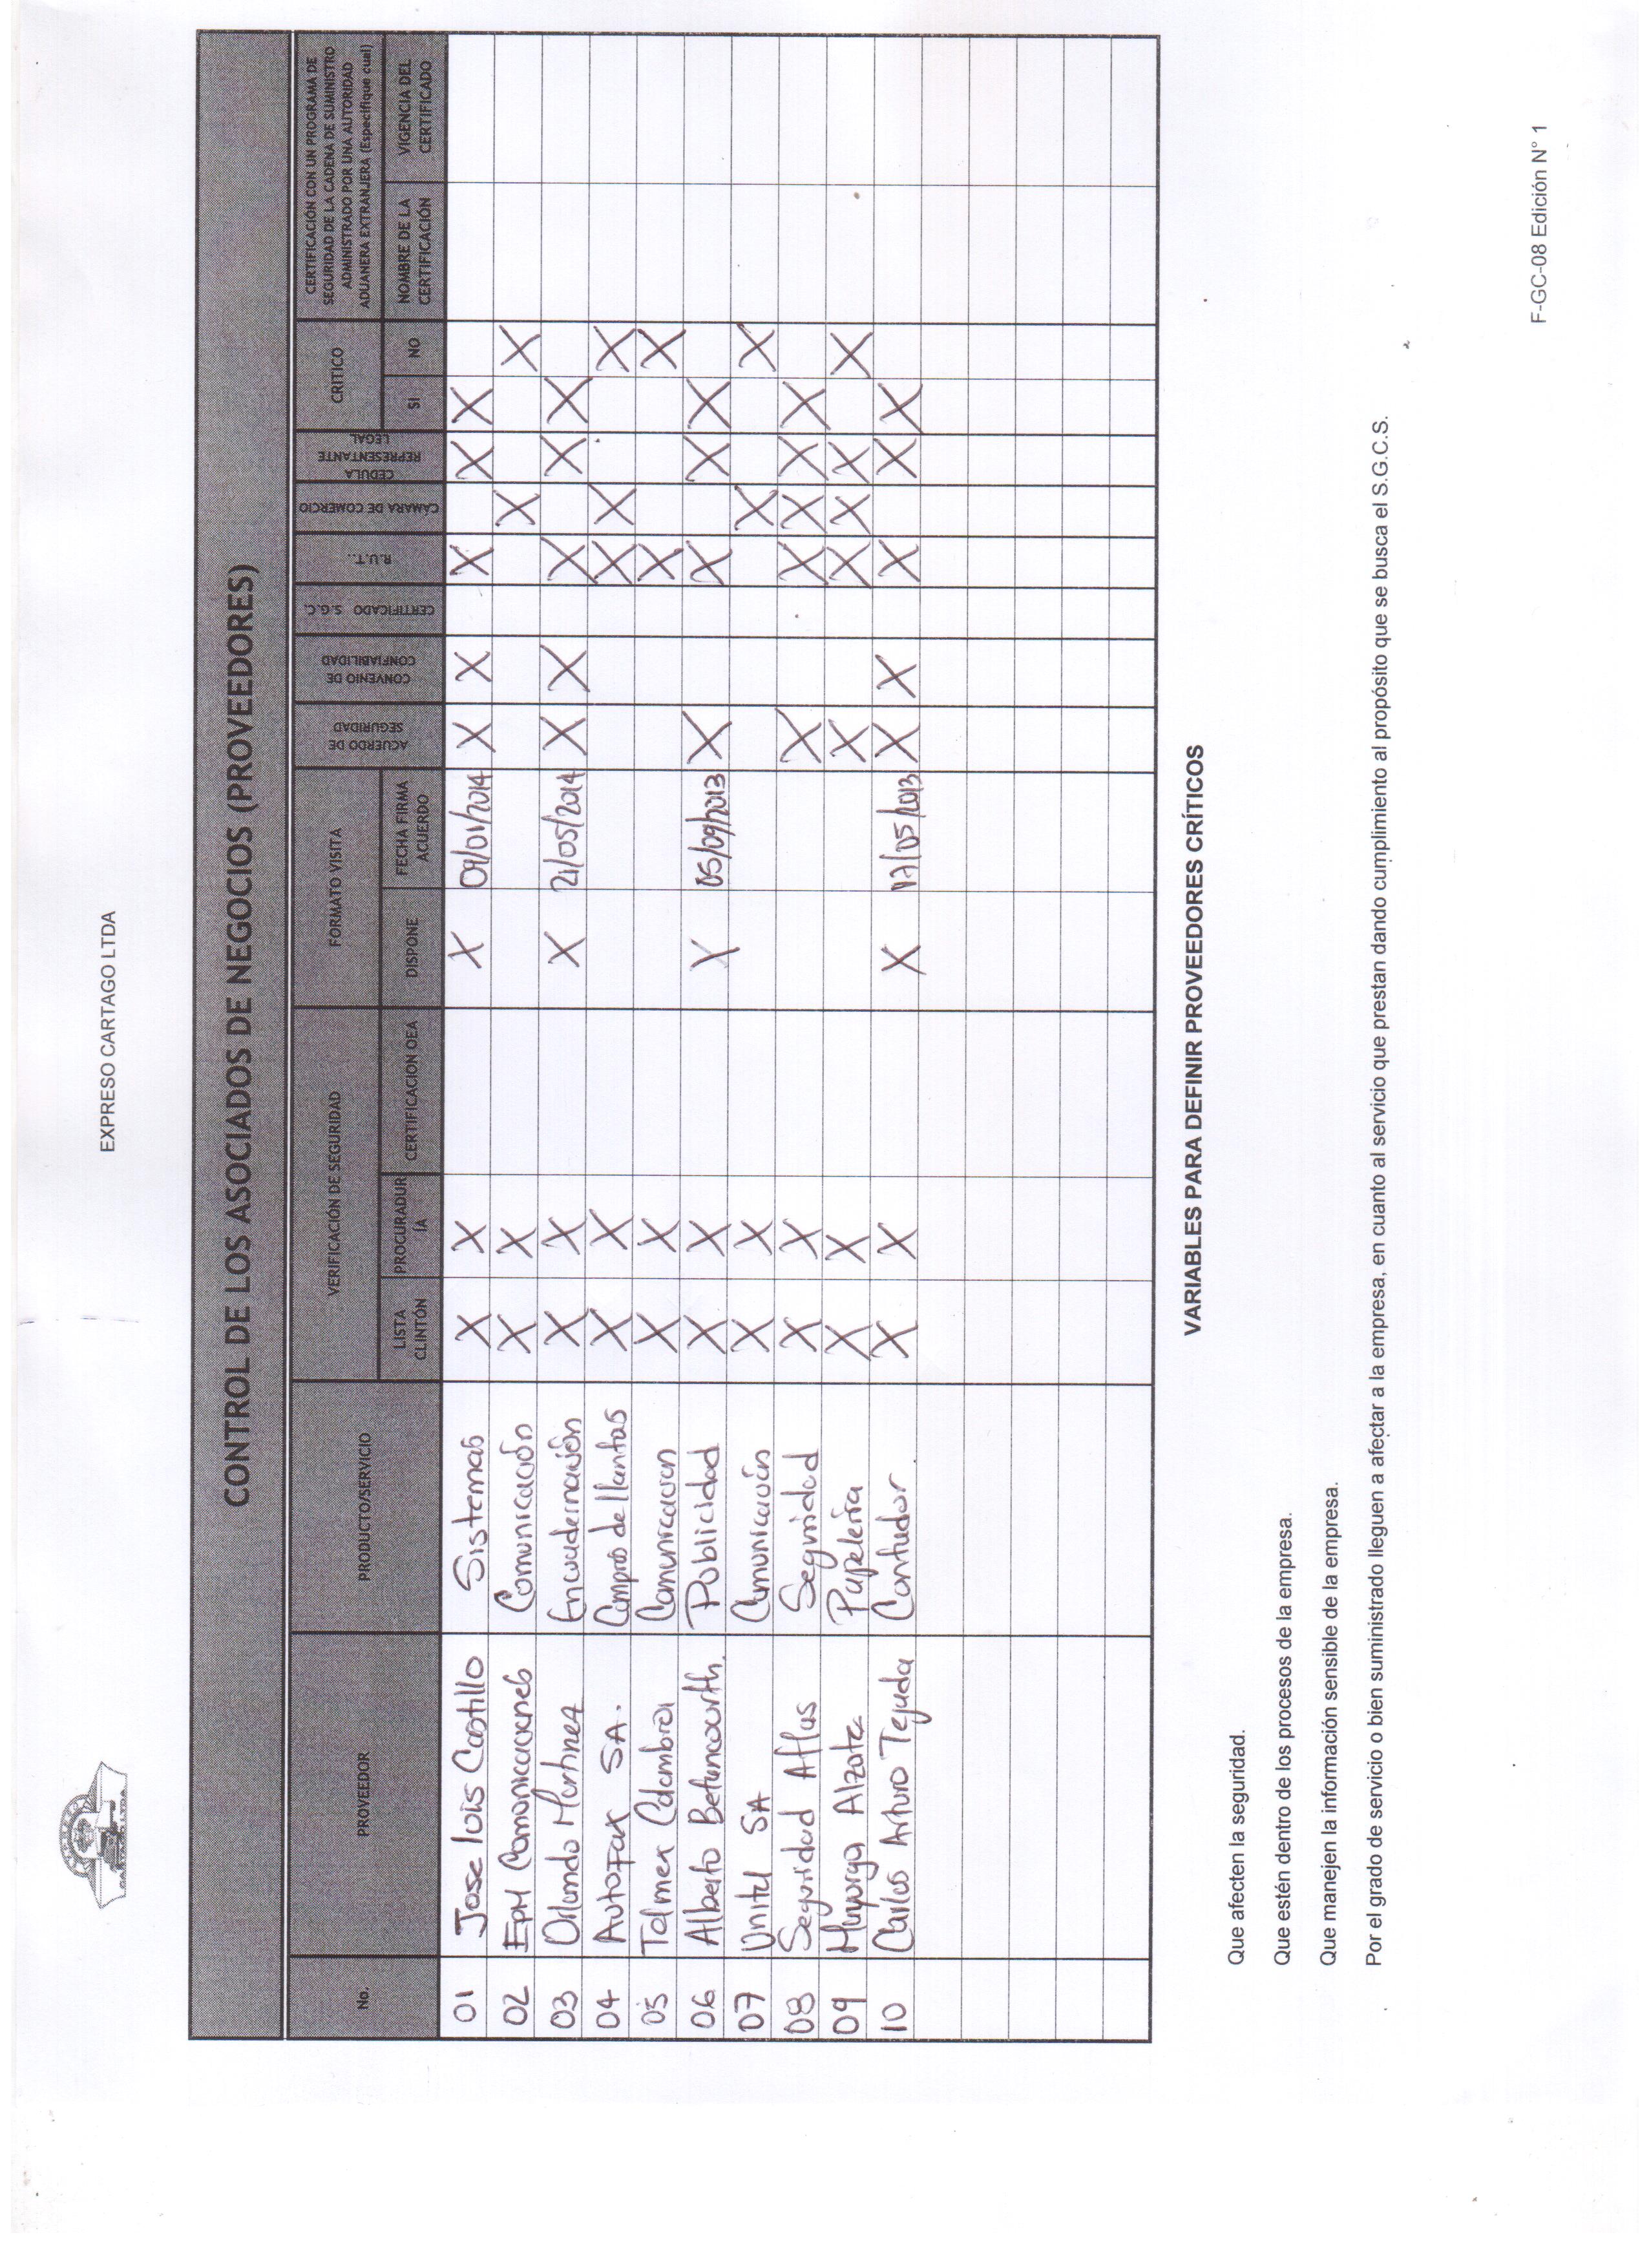 EXPRESO CARTAGO LTDA
CONTROL DE LOS ASOCIADOS DE NEGOCIOS (PROVEEDORES)
No. PROVEEDOR PRODUCTO/SERVICIO VERIFICACIÓN DE SEGURIDAD FORMATO VISITA ACUERDO DE SEGURIDAD CONVENIO DE CONFIABILIDAD CERTIFICADO S.G.C. R.U.T.. CAMARA DE COMERCIO CEDULA REPRESENTANTE LEGAL CRITICO CERTIFICACIÓN CON UN PROGRAMA DE SEGURIDAD DE LA CADENA DE SUMINISTRO ADMINISTRADO POR UNA AUTORIDAD ADUANERA EXTRANJERA (Especifique cual)
LISTA CLINTÓN PROCURADURÍA CERTIFICACION OEA DISPONE FECHA FIRMA ACUERDO SI NO NOMBRE DE LA CERTIFICACIÓN VIGENCIA DEL CERTIFICADO
01 Jose luis Castillo Sistemas X X X 09/01/2014 X X X X X
02 EPM Comonicaciones Comunicación X X X X
03 Orlando Martinez Encuadernación X X X 21/05/2014 X X X X X
04 Autofax SA. Compras de llantas X X X X X
05 Telmex Colombia Comunicacion X X X X
06 Alberto Betancourth. Publicidad X X X 05/09/2013 X X X X
07 Unitel SA Comunicación X X X X
08 Seguridad Atlas Seguridad X X X X X X X
09 Alzate Papelería X X X X X X X
10 Carlos Arturo Tejada Contador X X X 17/05/2013 X X X X X
VARIABLES PARA DEFINIR PROVEEDORES CRÍTICOS
Que afecten la seguridad.
Que estén dentro de los procesos de la empresa.
Que manejen la información sensible de la empresa.
Por el grado de servicio o bien suministrado lleguen a afectar a la empresa, en cuanto al servicio que prestan dando cumplimiento al propósito que se busca el S.G.C.S.
F-GC-08 Edición N° 1